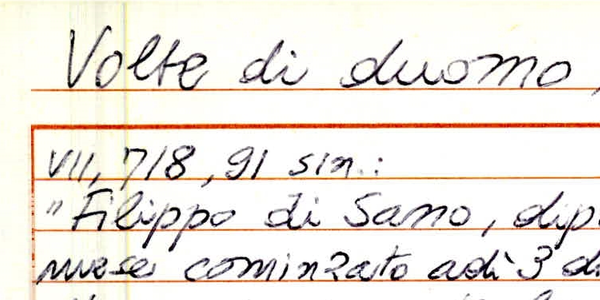 Volte di duomo,
VII, 718, 91 sin.:
"Filippo di Sano, dip
mese cominzato adì 3 d